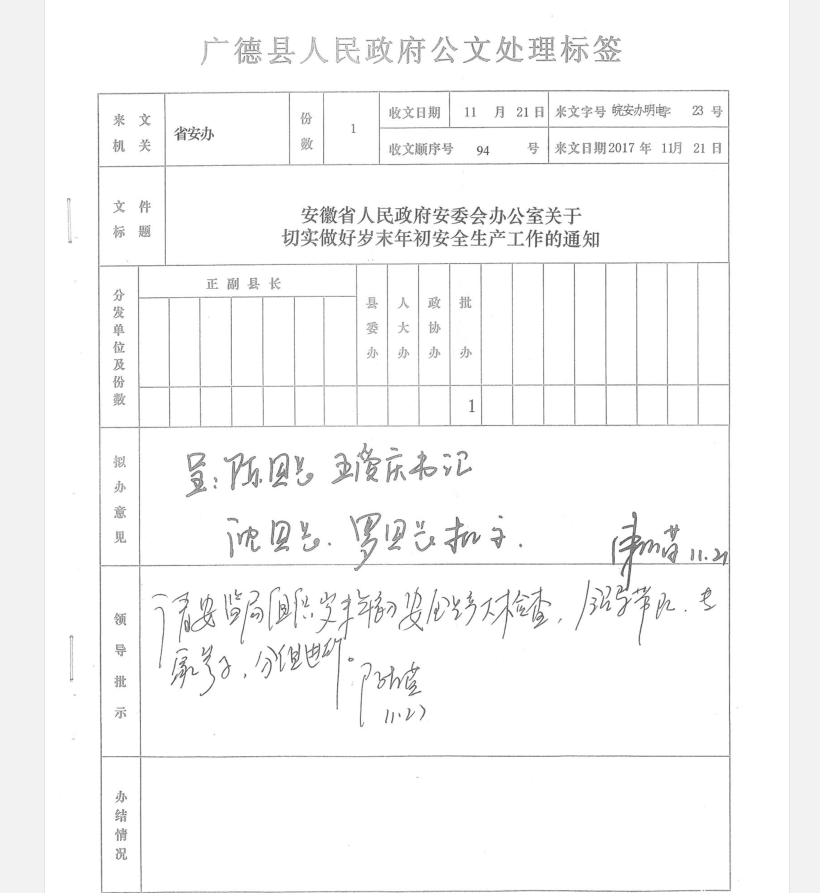 广德县人民政府公文处理标签
来文机关 省安办 份数 1 收文日期 11 月 21 日 来文字号 皖安办明电字 23 号
收文顺序号 94 号 来文日期 2017 年 11月 21 日
文件标题
安徽省人民政府安委会办公室关于
切实做好岁末年初安全生产工作的通知
分发单位及份数
正副县长
县委办 人大办 政协办 批办
1
拟办意见
呈：陈县长 王资庆书记
沈县长、罗县长批示．
11.21
领导批示
请安监局组织岁末年初安全生产大检查，领导带队、专
家参与，分组进行。
11.27
办结情况